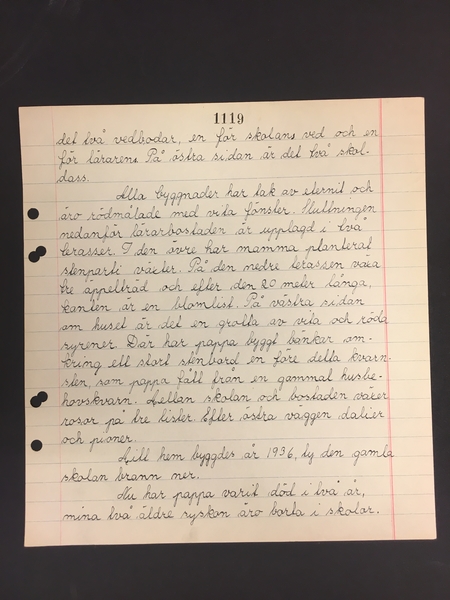 1119
det två vedbodar, en för skolans ved och en
för lärarens. På östra sidan är det två skol-
dass.
Alla byggnader har tak av eternit och
äro rödmålade med vita fönster. Sluttningen
nedanför lärarbostaden är upplagd i två
terasser. I den övre har mamma planterat
stenparti växter. På den nedre terassen växa
tre äppelträd och efter den 20 meter långa,
kanten är en blomlist. På västra sidan
om huset är det en grotta av vita och röda
syrener. Där har pappa byggt bänkar om-
kring ett stort stenbord en före detta kvarn-
sten, som pappa fått från en gammal husbe-
hovskvarn. Mellan skolan och bostaden växer
rosor på tre lister. Efter östra väggen dalier
och pioner.
Mitt hem byggdes år 1936, ty den gamla
skolan brann ner.
Nu har pappa varit död i två år,
mina två äldre syskon äro borta i skolor.